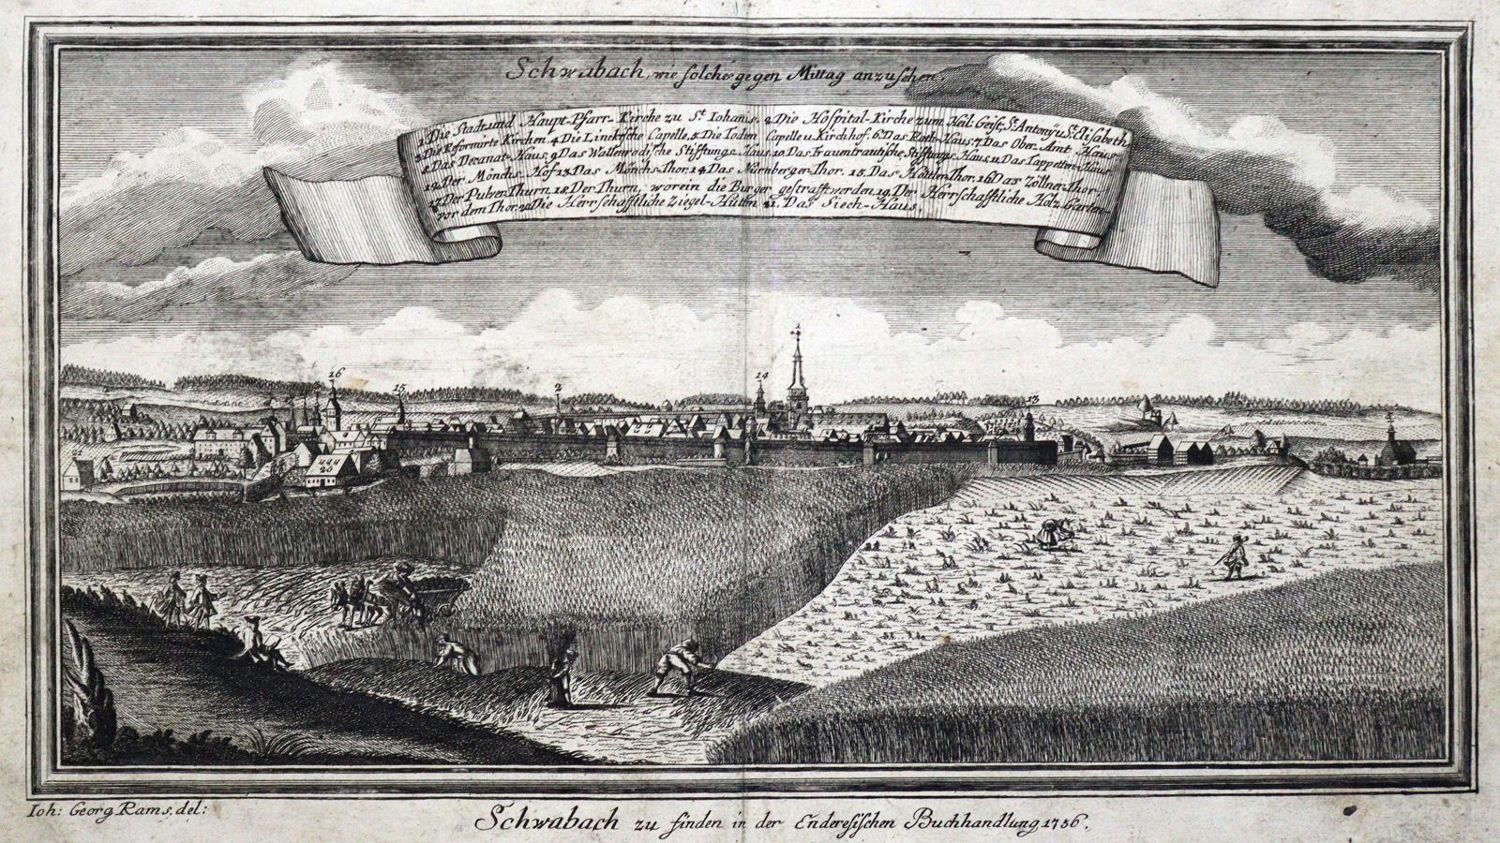 Schwabach, wie solche gegen Mittag anzusehen.
1. Die Stadt und Haupt-Pfarr-Kirche zu St. Iohanis. 2. Die Hospital-Kirche zum Heil. Geist, St. Antony u. St. Elisabeth
3. Die Reformirte Kirchen. 4. Die Linckische Capelle. 5. Die Toden Capelle u. Kirchhof. 6. Das Rath-Haus. 7. Das Ober-Amt Haus
8. Das Decanat-Haus. 9. Das Wallenrodische Stifftungs Haus. 10. Das Frauentrautische Stifftungs Haus. 11. Das Tappetten Haus.
12. Der Mönchs-Hof. 13. Das Mönchs Thor. 14. Das Nürnberger-Thor. 15. Das Hütten Thor. 16. Das Zöllner-Thor.
17. Der Pulver Thurn. 18. Der Thurn, worein die Bürger gestrafft werden. 19. Der Herrschafftliche Holz-Garten
vor dem Thor. 20. Die Herrschafftliche Ziegel-Hütten. 21. Das Siech-Haus.
16
15
2
14
13
20
Ioh: Georg Rams. del:
Schwabach zu finden in der Enderesischen Buchhandlung 1756.